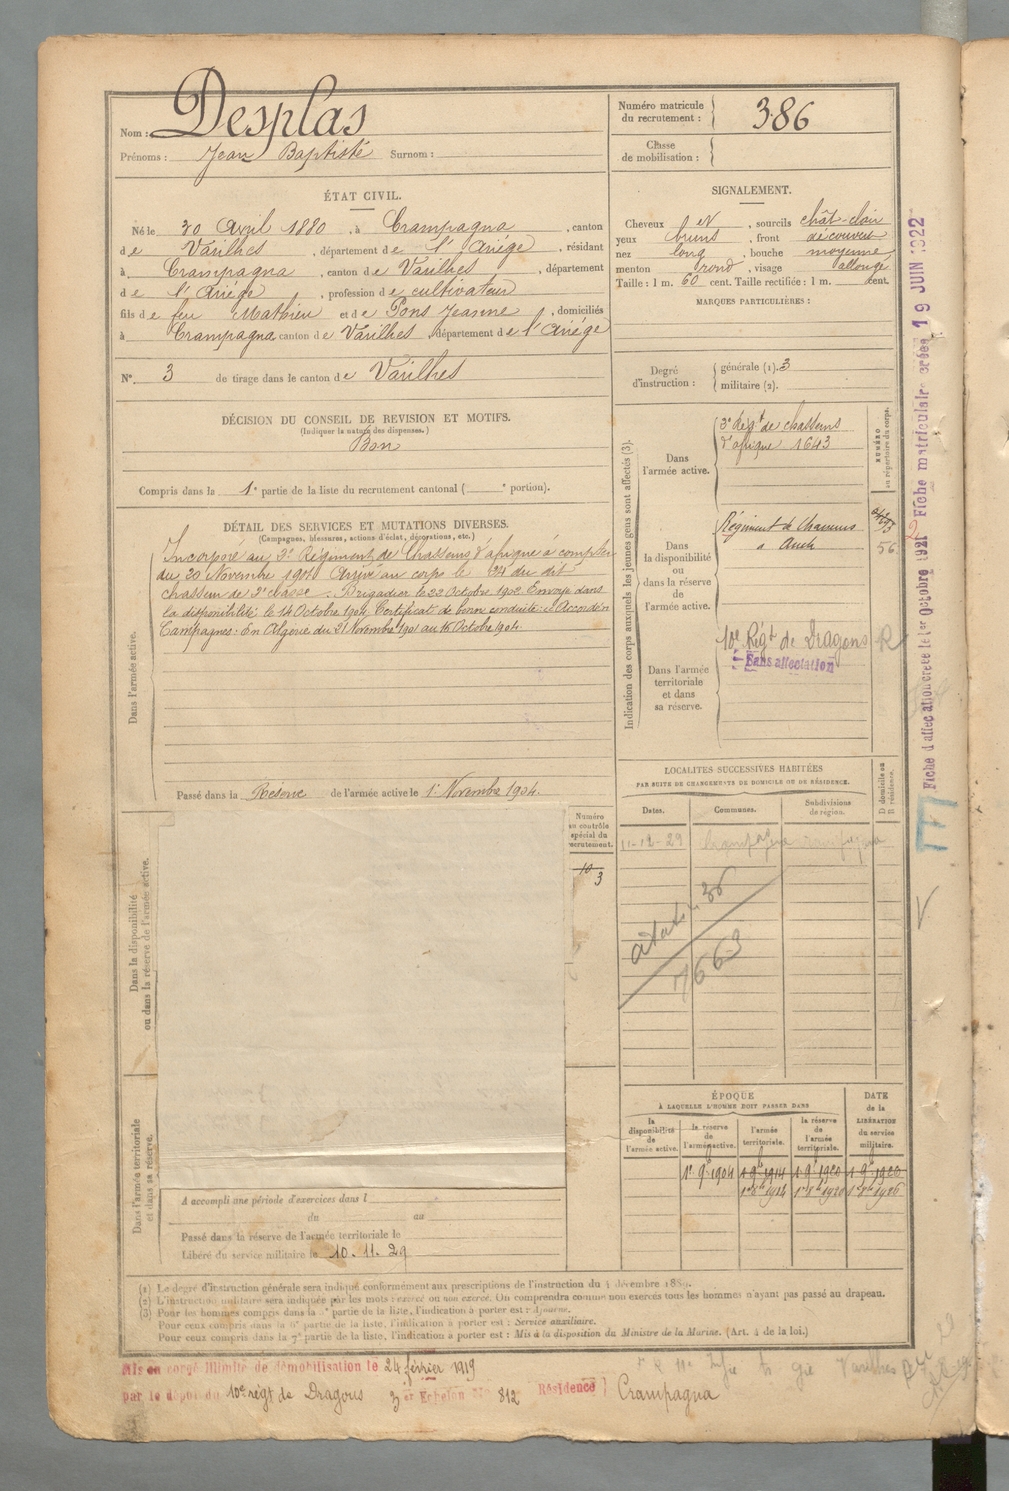 Nom : Desplas
Prénoms : Jean Baptiste Surnom :
Numéro matricule
du recrutement : 386
Classe
de mobilisation :
ÉTAT CIVIL.
Né le 30 Avril 1880, à Crampagna, canton
de Varilhes, département de l'Ariége, résidant
à Crampagna, canton de Varilhes, département
de l'Ariége, profession de cultivateur
fils de feu Mathieu et de Pons Jeanne, domiciliés
à Crampagna canton de Varilhes, département de l'Ariége
N° 3 de tirage dans le canton de Varilhes
SIGNALEMENT.
Cheveux id N, sourcils chât-clair
yeux bruns, front découvert
nez long, bouche moyenne
menton rond, visage allongé
Taille : 1 m. 60 cent. Taille rectifiée : 1 m. cent.
MARQUES PARTICULIÈRES :
Degré
d'instruction :
générale (1). 3
militaire (2).
DÉCISION DU CONSEIL DE REVISION ET MOTIFS.
(Indiquer la nature des dispenses.)
Bon
Compris dans la 1e partie de la liste du recrutement cantonal ( e portion).
DÉTAIL DES SERVICES ET MUTATIONS DIVERSES.
(Campagnes, blessures, actions d'éclat, décorations, etc.)
Incorporé au 3e Régiment de Chasseurs d'afrique à compter
du 20 Novembre 1901 Arrivé au corps le 24 du dit
chasseur de 2e classe. Brigadier le 22 Octobre 1902 Envoyé dans
la disponibilité le 14 Octobre 1904 Certificat de bonne conduite : Accordé
Campagnes : En Algérie du 21 Novembre 1901 au 16 Octobre 1904
Dans l'armée active.
Passé dans la Réserve de l'armée active le 1er Novembre 1904.
Indication des corps auxquels les jeunes gens sont affectés (3).
NUMÉRO
au répertoire du corps.
Dans
l'armée active.
3e Régt de chasseurs
d'afrique 1643
Dans
la disponibilité
ou
dans la réserve
de
l'armée active.
Régiment de Chasseurs
à Auch
56
Dans l'armée
territoriale
et dans
sa réserve.
10e Régt de Dragons R
Sans affectation
LOCALITÉS SUCCESSIVES HABITÉES
PAR SUITE DE CHANGEMENTS DE DOMICILE OU DE RÉSIDENCE.
D domicile ou
R résidence.
Dates.
Communes.
Subdivisions
de région.
11-12-29 Crampagna
36
1663
Numéro
au contrôle
spécial du
recrutement.
10
3
Dans la disponibilité
ou dans la réserve de l'armée active.
Dans l'armée territoriale
et dans sa réserve.
A accompli une période d'exercices dans l
du au
Passé dans la réserve de l'armée territoriale le
Libéré du service militaire le 10.11.29
ÉPOQUE
À LAQUELLE L'HOMME DOIT PASSER DANS
la
disponibilité
de
l'armée active.
la réserve
de
l'armée active.
l'armée
territoriale.
la réserve
de
l'armée
territoriale.
DATE
de la
LIBÉRATION
du service
militaire.
1er 9b 1904 1 9b 1914 1 9b 1920 1 9b 1926
(1) Le degré d'instruction générale sera indiqué conformément aux prescriptions de l'instruction du 4 décembre 1889.
(2) L'instruction militaire sera indiquée par les mots : exercé ou non exercé. On comprendra comme non exercés tous les hommes n'ayant pas passé au drapeau.
(3) Pour les hommes compris dans la partie de la liste, l'indication à porter est : Ajourné.
Pour ceux compris dans la 6e partie de la liste, l'indication à porter est : Service auxiliaire.
Pour ceux compris dans la 7e partie de la liste, l'indication à porter est : Mis à la disposition du Ministre de la Marine. (Art. 4 de la loi.)
Mis en congé illimité de démobilisation le 24 février 1919
par le dépôt du 10e régt de Dragons 3e Echelon N° 812 Résidence } Crampagna
Fiche d'affectation créée le 1er Octobre 1921 Fiche matriculaire créée 19 JUIN 1922